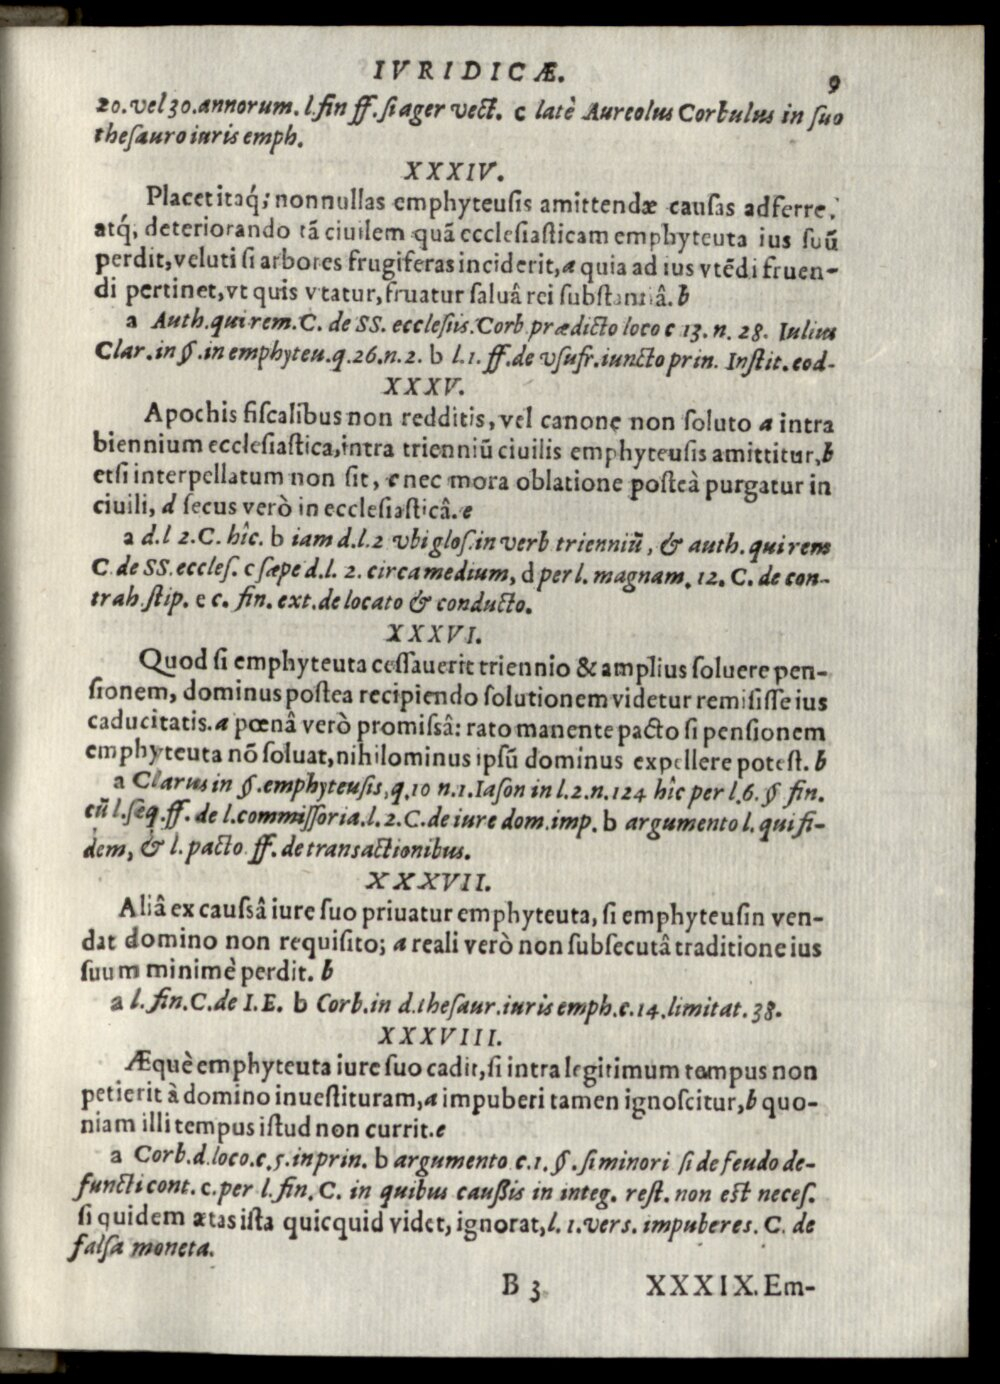 IVRIDICÆ. 9
20.vel 30.annorum. l.fin ff.si ager vect. c latè Aureolus Corbulus in suo
thesauro iuris emph.
XXXIV.
Placet itaq́; nonnullas emphyteusis amittendæ causas adferre,
atq́, deteriorando tã ciuilem quã ecclesiasticam emphyteuta ius suũ
perdit, veluti si arbores frugiferas inciderit, a quia ad ius vtẽdi fruen-
di pertinet, vt quis vtatur, fruatur saluâ rei substantiâ. b
a Auth.qui rem.C. de SS. ecclesiis.Corb prædicto loco c 13. n. 28. Iulius
Clar.in §.in emphyteu.q.26.n.2. b l.1. ff.de vsufr.iuncto prin. Instit.eod-
XXXV.
Apochis fiscalibus non redditis, vel canone non soluto a intra
biennium ecclesiastica, intra trienniũ ciuilis emphyteusis amittitur, b
etsi interpellatum non sit, c nec mora oblatione posteà purgatur in
ciuili, d secus verò in ecclesiasticâ. e
a d.l 2.C. hîc. b iam d.l.2 vbi glos.in verb trienniũ, & auth.qui rem
C de SS.eccles. c sæpe d.l. 2. circa medium, d per l. magnam. 12. C. de con-
trah.stip. e c. fin. ext.de locato & conducto.
XXXVI.
Quod si emphyteuta cessauerit triennio & amplius soluere pen-
sionem, dominus postea recipiendo solutionem videtur remisisse ius
caducitatis. a pœnâ verò promissâ: rato manente pacto si pensionem
emphyteuta nõ soluat, nihilominus ipsũ dominus expellere potest. b
a Clarus in §.emphyteusis, q.10 n.1.Iason in l.2.n.124 hîc per l.6. § fin.
cũ l.seq.ff. de l.commissoria.l.2.C.de iure dom.imp. b argumento l. qui fi-
dem, & l.pacto ff.de transactionibus.
XXXVII.
Aliâ ex caussâ iure suo priuatur emphyteuta, si emphyteusin ven-
dat domino non requisito; a reali verò non subsecutâ traditione ius
suum minimè perdit. b
a l.fin.C.de I.E. b Corb.in d.thesaur.iuris emph.c.14.limitat.38.
XXXVIII.
Æquè emphyteuta iure suo cadit, si intra legitimum tempus non
petierit à domino inuestituram, a impuberi tamen ignoscitur, b quo-
niam illi tempus istud non currit. e
a Corb.d.loco.c.5.in prin. b argumento c.1.§.si minori si de feudo de-
functi cont. c.per l.fin.C. in quibus caußis in integ. rest. non est neces.
si quidem ætas ista quicquid videt, ignorat, l.1.vers. impuberes. C. de
falsa moneta.
B 3 XXXIX. Em-